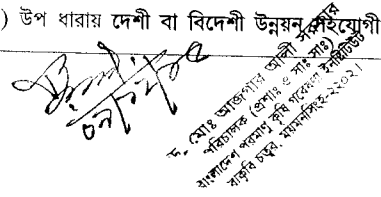 ) উপ ধারায় দেশী বা বিদেশী উন্নয়ন সহযোগী
ড. মোঃ আজগার আলী সরকার
পরিচালক (প্রশাঃ ও সাঃ সাঃ)
বাংলাদেশ পরমাণু কৃষি গবেষণা ইনষ্টিটিউট
বাকৃবি চত্বর, ময়মনসিংহ-২২০২।